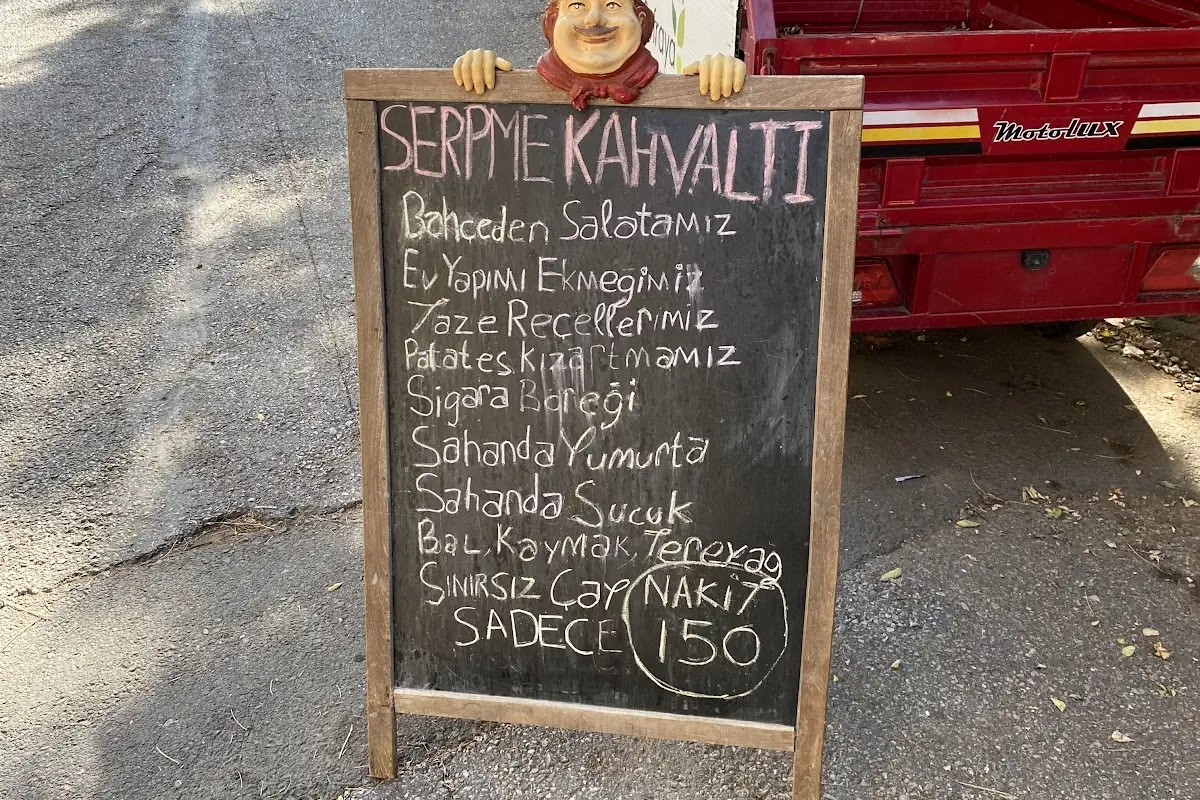 SERPME KAHVALTI
Bahçeden Salatamız
Ev Yapımı Ekmeğimiz
Taze Reçellerimiz
Patates Kızartmamız
Sigara Böreği
Sahanda Yumurta
Sahanda Sucuk
Bal, Kaymak, Tereyağ
Sınırsız Çay NAKİT
SADECE 150
MotoLUX